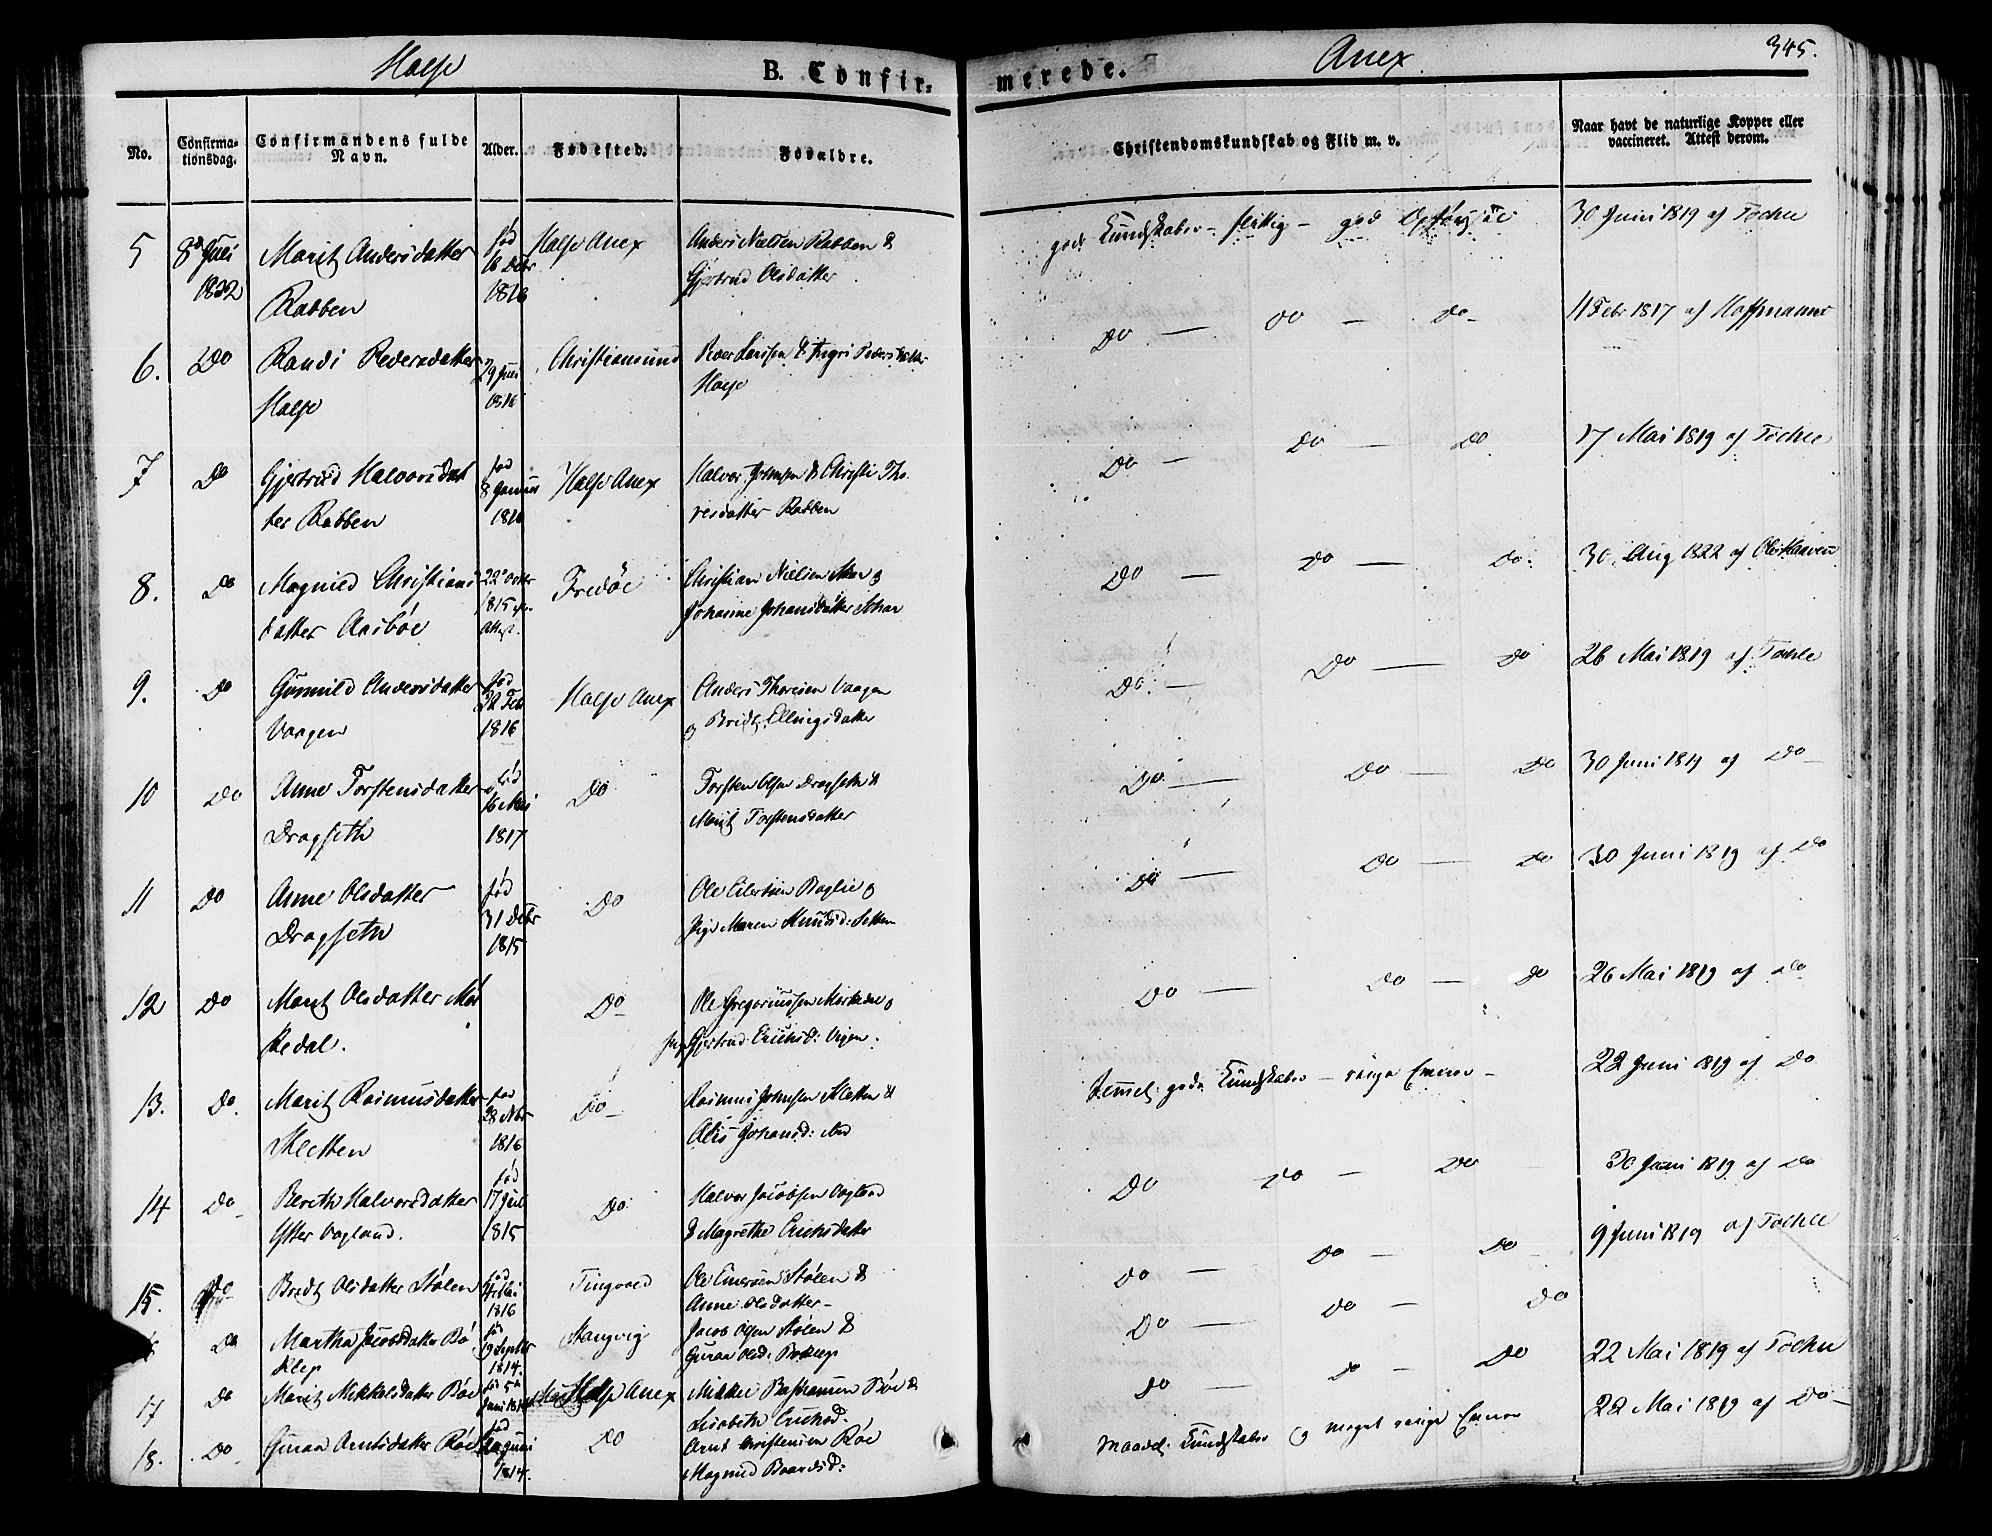 Halse
B. Confirmerede.
Anex
345.
No.
Confirmationsdag.
Confirmandens fulde Navn.
Alder.
Fødested.
Forældre.
Christendomskundskab og Flid m. v.
Naar havt de naturlige Kopper eller vaccineret. Attest derom.
5
8
1832
Marit Andersdatter
Rabben
fød
16 Debr
1816
Halse Anex
Anders Nielsen Rabben &
Gjertrud Olsdatter
gode Kundskaber - flittig - god
30 Juni 1819 af Tochle
6.
Do
Randi Pedersdatter
Halse
29
1816
Christiansund
Peder Larsen & Ingri Pedersdatter
Halse
Do — Do — Do
11 Febr 1817 af Hoffmann
7
Do
Gjertrud Halvorsdat
ter Rabben
fød
8 Januar
1816
Halse Anex
Halvor Johnsen & Christi Tho
resdatter Rabben
Do — Do — Do
17 Mai 1819 af Tochle
8.
Do
Magnild Christians
datter Aasbøe
22 Octbr
1815
Attest.
Fredöe
Christian Nielsen
Johanne Johansdatter
Do — Do — Do
30 Aug 1822 af
9.
Do
Gunnild Andersdatter
Vaagen
fød
22 Feb
1816
Halse Anex
Anders Thoresen Vaagen
og Bridt Ellingsdatter
Do — Do — Do
26 Mai 1819 af Tochle
10
Do
Anne Torstensdatter
Dragseth
fød
16 Mai
1817
Do
Torsten Olsen Dragseth &
Marit Torstensdatter
Do — Do — Do
30 Juni 1819 af Do
11
Do
Anne Olsdatter
Dragseth
fød
31 Debr
1815
Do
Ole Eilertsen Boglie og
Pige Maren Knudsd: Setten
Do — Do — Do
30 Juni 1819 af Do
12
Do
Marit Olsdatter Mør
kedal.
Do
Ole Gregoriussen Mørkedal og
Gjertrud Erichsd:
Do — Do — Do
26 Mai 1819 af Do
13.
Do.
Marit Rasmusdatter
Kletten
fød
28 Nbr
1816
Do
Rasmus Johnsen Kletten &
Johansd:
gode Kundskaber — ringe Evner —
22 Juni 1819 af Do
14
Do
Bereth Halvorsdatter
Ytter Vagland.
fød
17 Juli
1815
Do
Halvor Jacobsen Vagland
& Magrethe Erichsdatter
Do Do — Do
30 Juni 1819 af Do
15.
Do
Bridt Olsdatter Stølen
fød
1816
Tingvold
Ole Stølen &
Anne Olsdatter
Do — Do — Do
9 Juni 1819 af Tochle
Do
Martha Jacobsdatter Bø
klep
fød
9 Septbr
1814.
Stangvig
Jacob Olsen Stølen &
Guraa Olsd: Bøklep
Do — Do — Do
17
Do
Marit Mikkelsdatter Bøe
fød 5
Juni
Halse Anex
Mikkel Bastiansen Bøe &
Lisabeth Erichsd.
Do — Do — Do
22 Mai 1819 af Tochle
18.
Do
Guraa Arntsdatter Bøe
fød
1814.
Do
Arnt Christensen Bøe
Magnild Baardsd:
maadel. Kundskaber og meget ringe Evner
22 Mai 1819 af Do